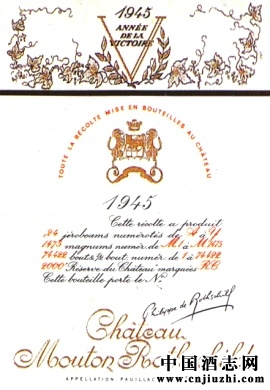 1945
ANNÉE
DE LA
VICTOIRE
TOUTE LA RÉCOLTE MISE EN BOUTEILLES AU CHÂTEAU
1945
Cette récolte a produit
24 jéroboams numérotés de A à Y
1475 magnums numér. de M1 à M1475
74422 bout. & ½ bout. numér. de 1 à 74422
2000 "Réserve du Château" marquées R.C.
Cette bouteille porte le N.
Philippe de Rothschild
Château
Mouton Rothschild
APPELLATION PAUILLAC
中国酒志网
www.cnjiuzhi.com